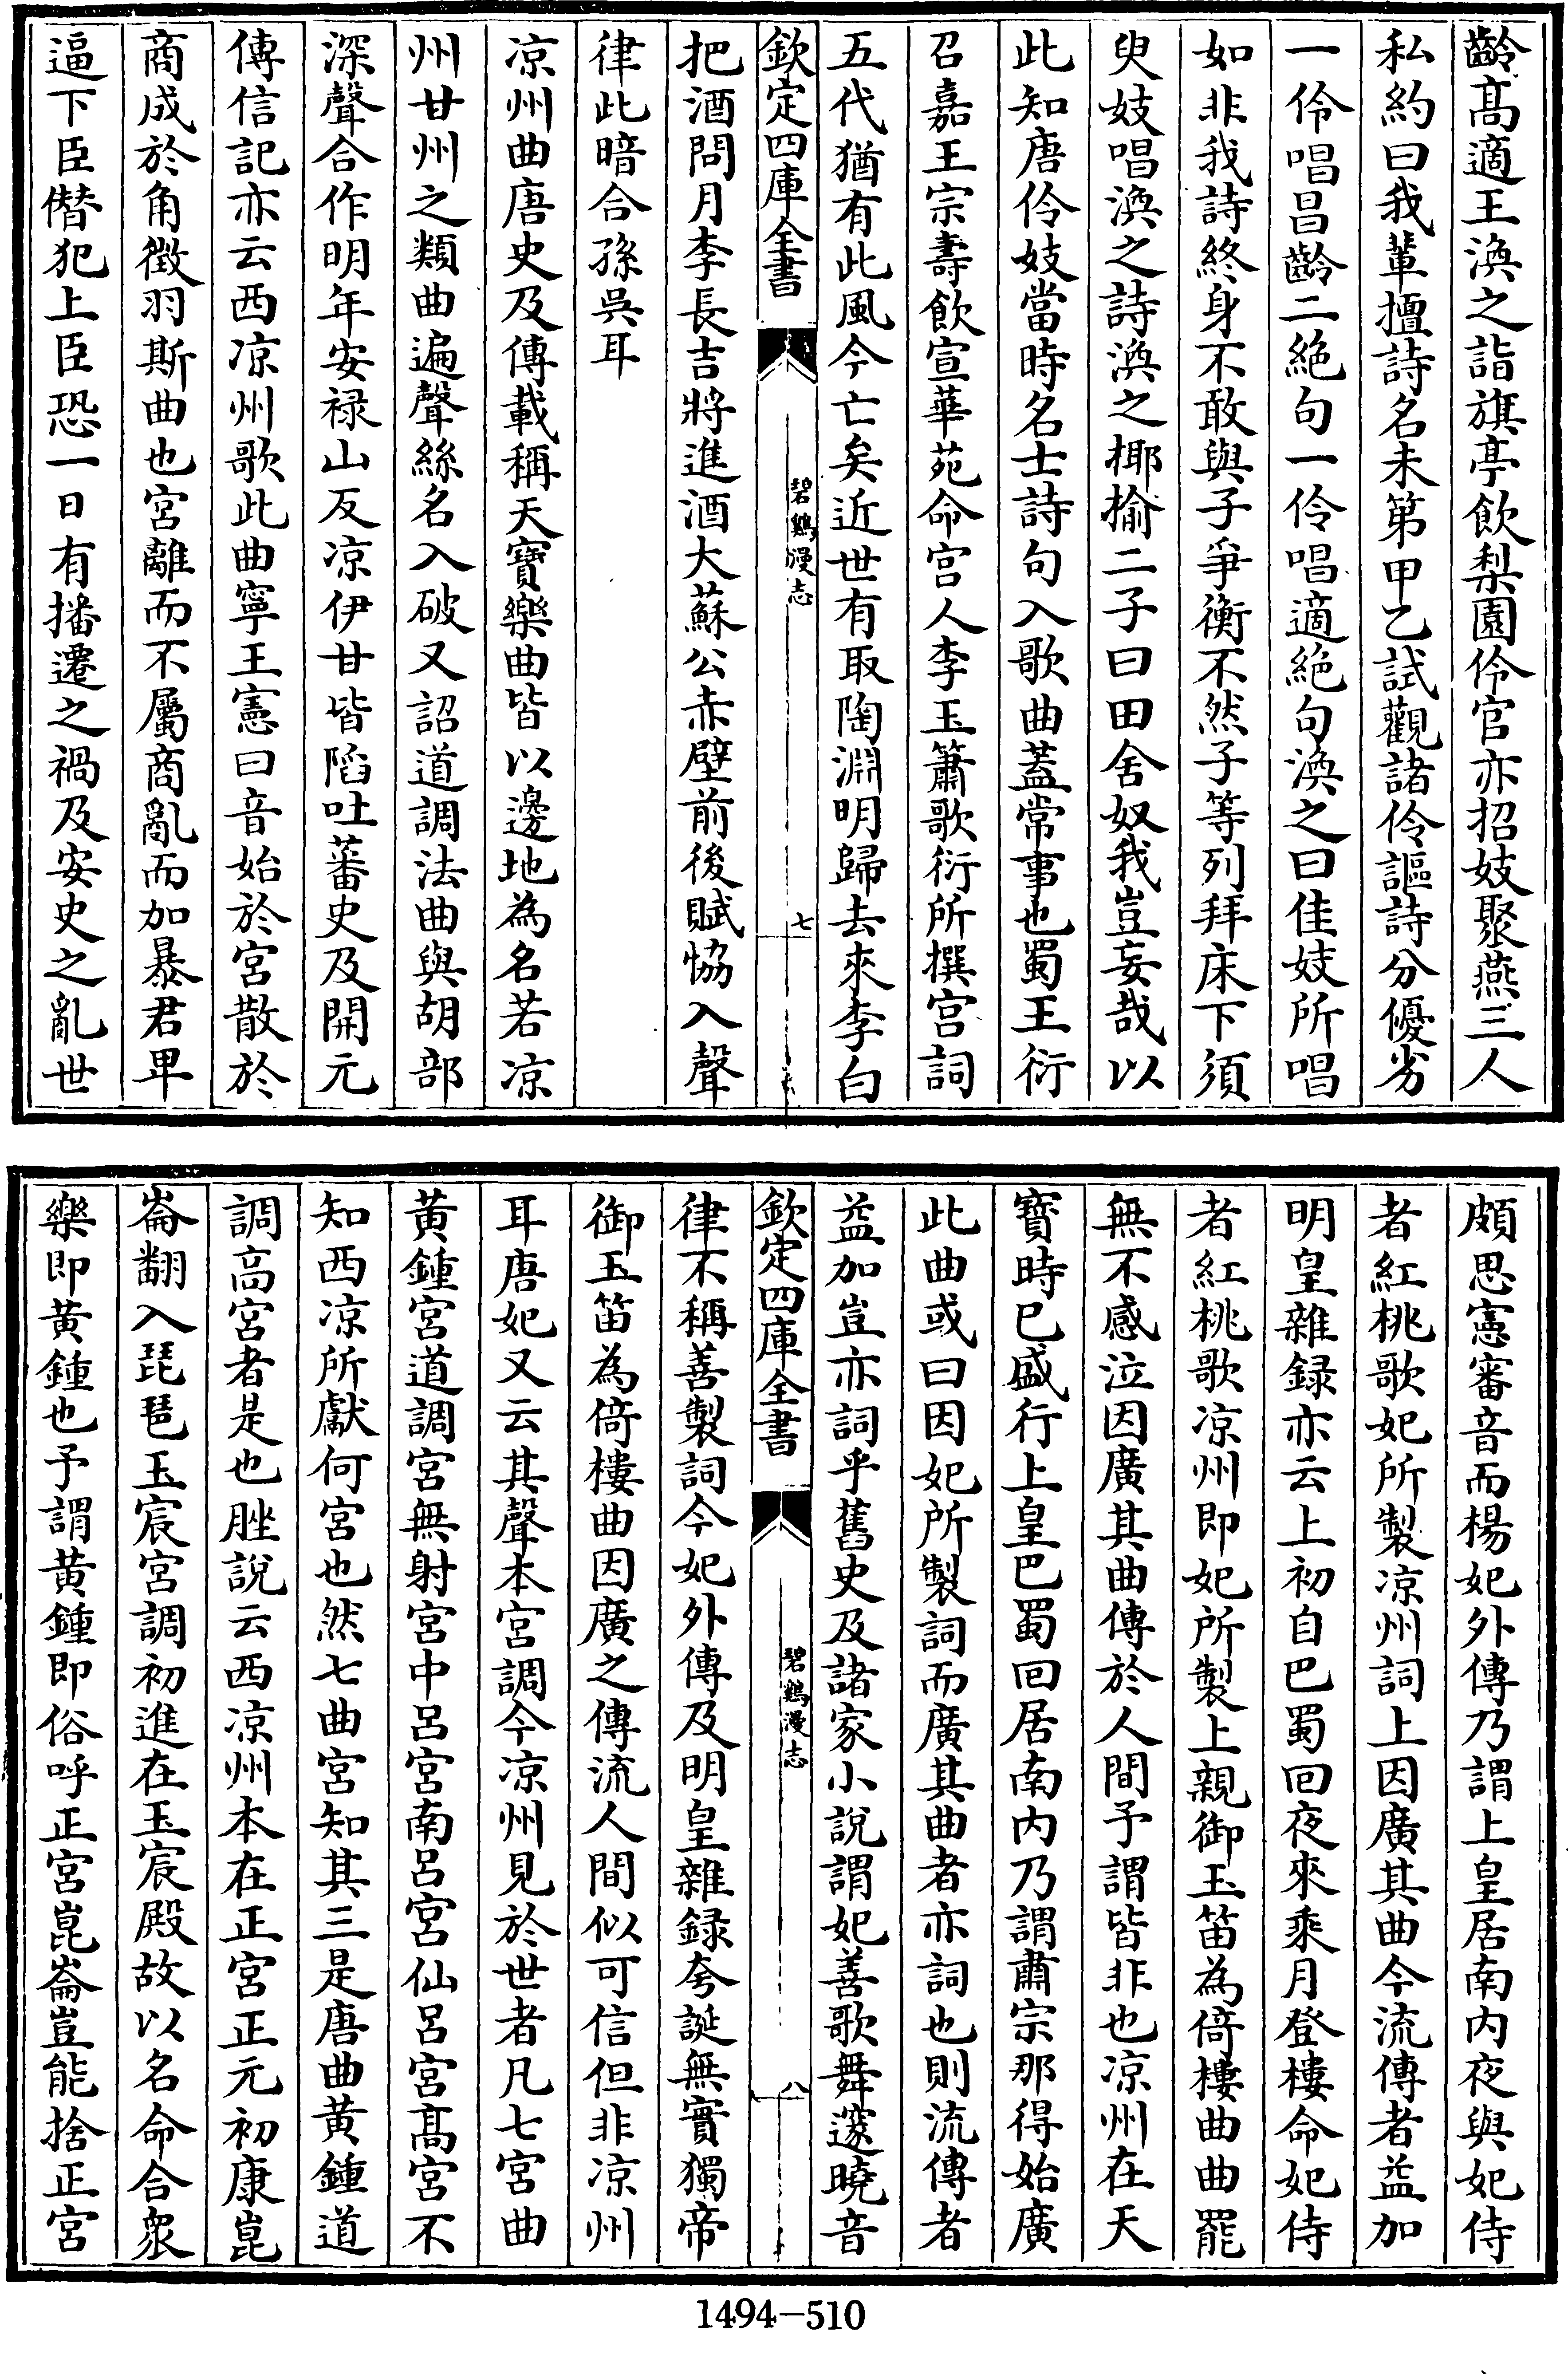 齡髙適王渙之詣旗亭飲梨園伶官亦招妓聚燕三人
私約曰我軰擅詩名未第甲乙試觀諸伶謳詩分優劣
一伶唱昌齡二絶句一伶唱適絶句渙之曰佳妓所唱
如非我詩終身不敢與子爭衡不然子等列拜床下須
臾妓唱渙之詩渙之揶揄二子曰田舍奴我豈妄哉以
此知唐伶妓當時名士詩句入歌曲蓋常事也蜀王衍
召嘉王宗壽飲宣華苑命宫人李玉簫歌衍所撰宫詞
五代猶有此風今亡矣近世有取陶淵明歸去來李白
欽定四庫全書
碧鷄漫志
七
把酒問月李長吉將進酒大蘇公赤壁前後賦協入聲
律此暗合孫吳耳
凉州曲唐史及傳載稱天寶樂曲皆以邊地為名若凉
州甘州之類曲遍聲絲名入破又詔道調法曲與胡部
深聲合作明年安禄山反凉伊甘皆陷吐蕃史及開元
傳信記亦云西凉州歌此曲寧王憲曰音始於宮散於
商成於角徵羽斯曲也宮離而不屬商亂而加暴君卑
逼下臣僭犯上臣恐一日有播遷之禍及安史之亂世
頗思憲審音而楊妃外傳乃謂上皇居南内夜與妃侍
者紅桃歌妃所製凉州詞上因廣其曲今流傳者益加
明皇雜録亦云上初自巴蜀回夜來乘月登樓命妃侍
者紅桃歌凉州即妃所製上親御玉笛為倚樓曲曲罷
無不感泣因廣其曲傳於人間予謂皆非也凉州在天
寶時已盛行上皇巴蜀回居南内乃謂肅宗那得始廣
此曲或曰因妃所製詞而廣其曲者亦詞也則流傳者
益加豈亦詞乎舊史及諸家小說謂妃善歌舞邃曉音
欽定四庫全書
碧鷄漫志
八
律不稱善製詞今妃外傳及明皇雜録夸誕無實獨帝
御玉笛為倚樓曲因廣之傳流人間似可信但非凉州
耳唐妃又云其聲本宮調今凉州見於世者凡七宮曲
黄鍾宮道調宮無射宮中呂宮南呂宮仙呂宮髙宮不
知西凉所獻何宮也然七曲宮知其三是唐曲黄鍾道
調高宮者是也脞說云西凉州本在正宮正元初康崑
崙翻入琵琶玉宸宮調初進在玉宸殿故以名命合衆
樂即黄鍾也予謂黄鍾即俗呼正宮崑崙豈能捨正宮
1494-510